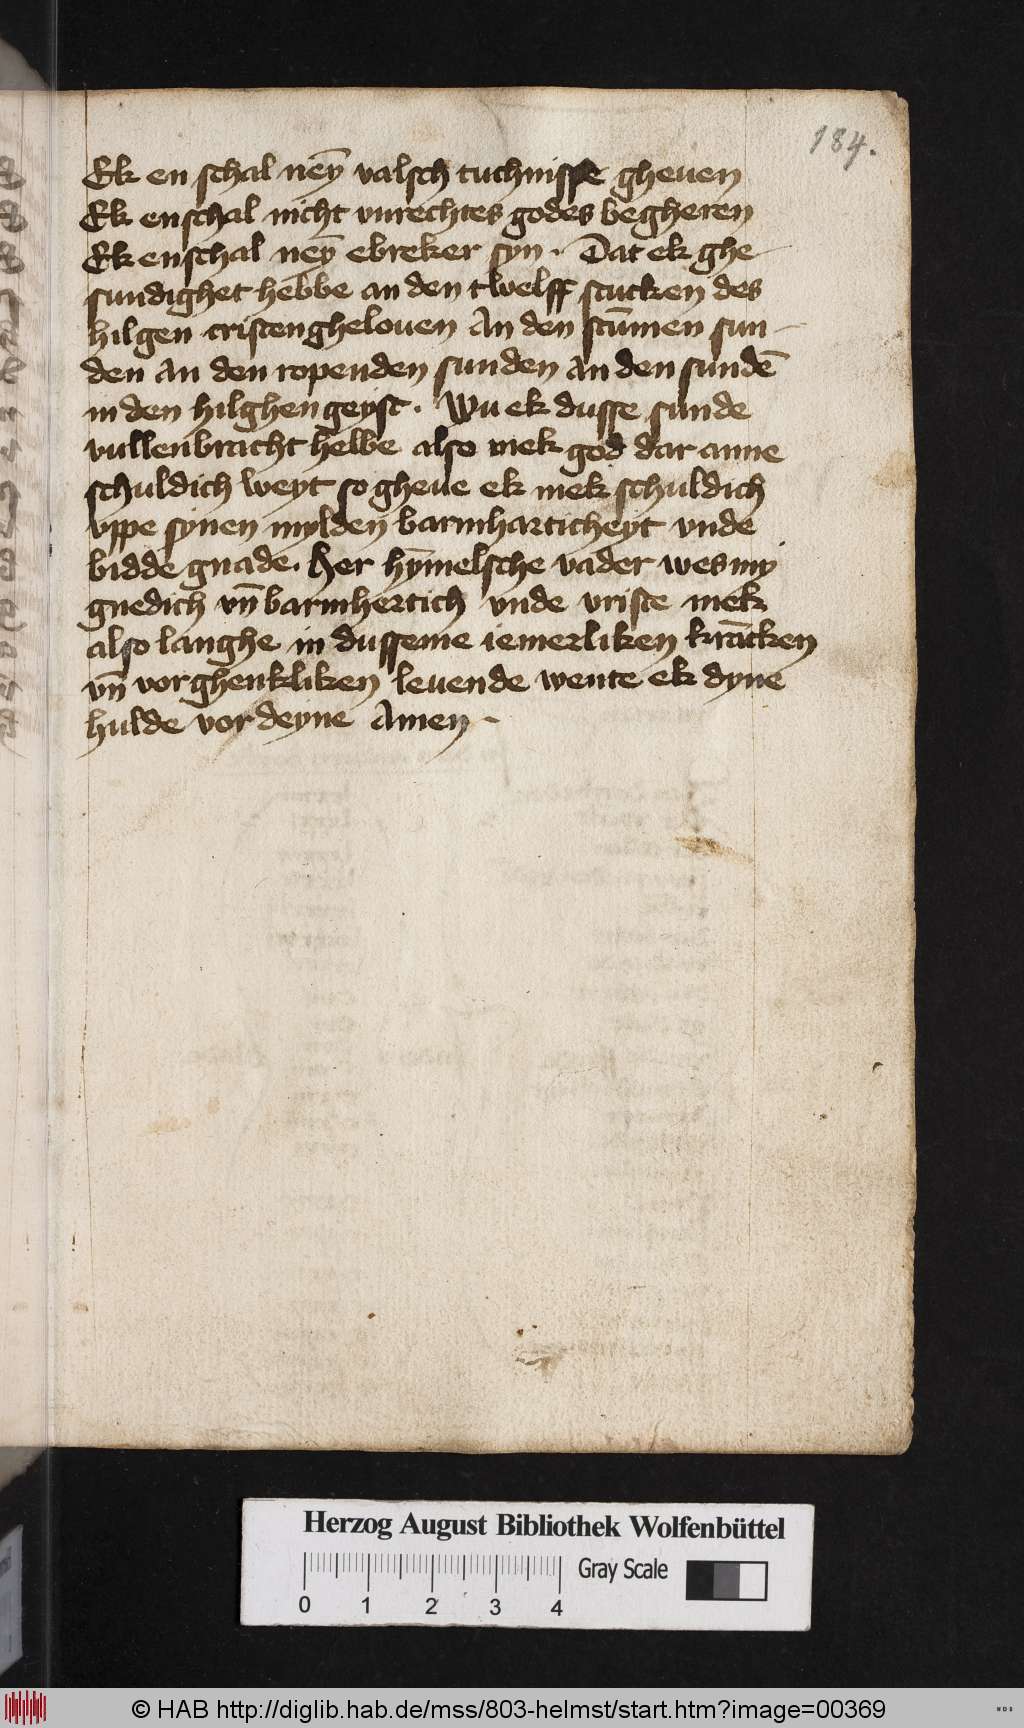 184.
Ek en schal neȳ valsch tuchnisse gheuen
Ek enschal nicht vnrechtes godes begheren
Ek enschal neȳ ebreker syn · Dat ek ghe
sundighet hebbe an den twelff stucken des
hilgen cristenghelouen An den stūmen sun-
den an den ropenden sunden an den sundē
in den hilghen geyst . Wu ek dusse sunde
vullenbracht hebbe also mek god dar anne
schuldich weyt so gheue ek mek schuldich
vppe synen mylden barmharticheyt vnde
bidde gnade. Her hȳmelsche vader wes my
gnedich vn̄ barmhertich vnde vriste mek
also langhe in dusseme iemerliken krācken
vn̄ vorghenkliken leuende wente ek dyne
hulde vordeyne Amen -
Herzog August Bibliothek Wolfenbüttel
Gray Scale
0 1 2 3 4
© HAB http://diglib.hab.de/mss/803-helmst/start.htm?image=00369